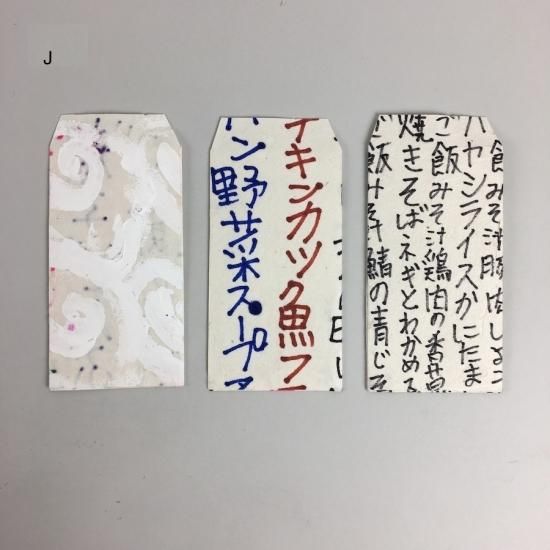 J
チキンカツ魚フ
パン野菜スープ
飯みそ汁豚肉しょう
ハヤシライスかにたま
ご飯みそ汁鶏肉の香草
焼きそばネギとわかめ
ご飯みそ汁鯖の青じそ